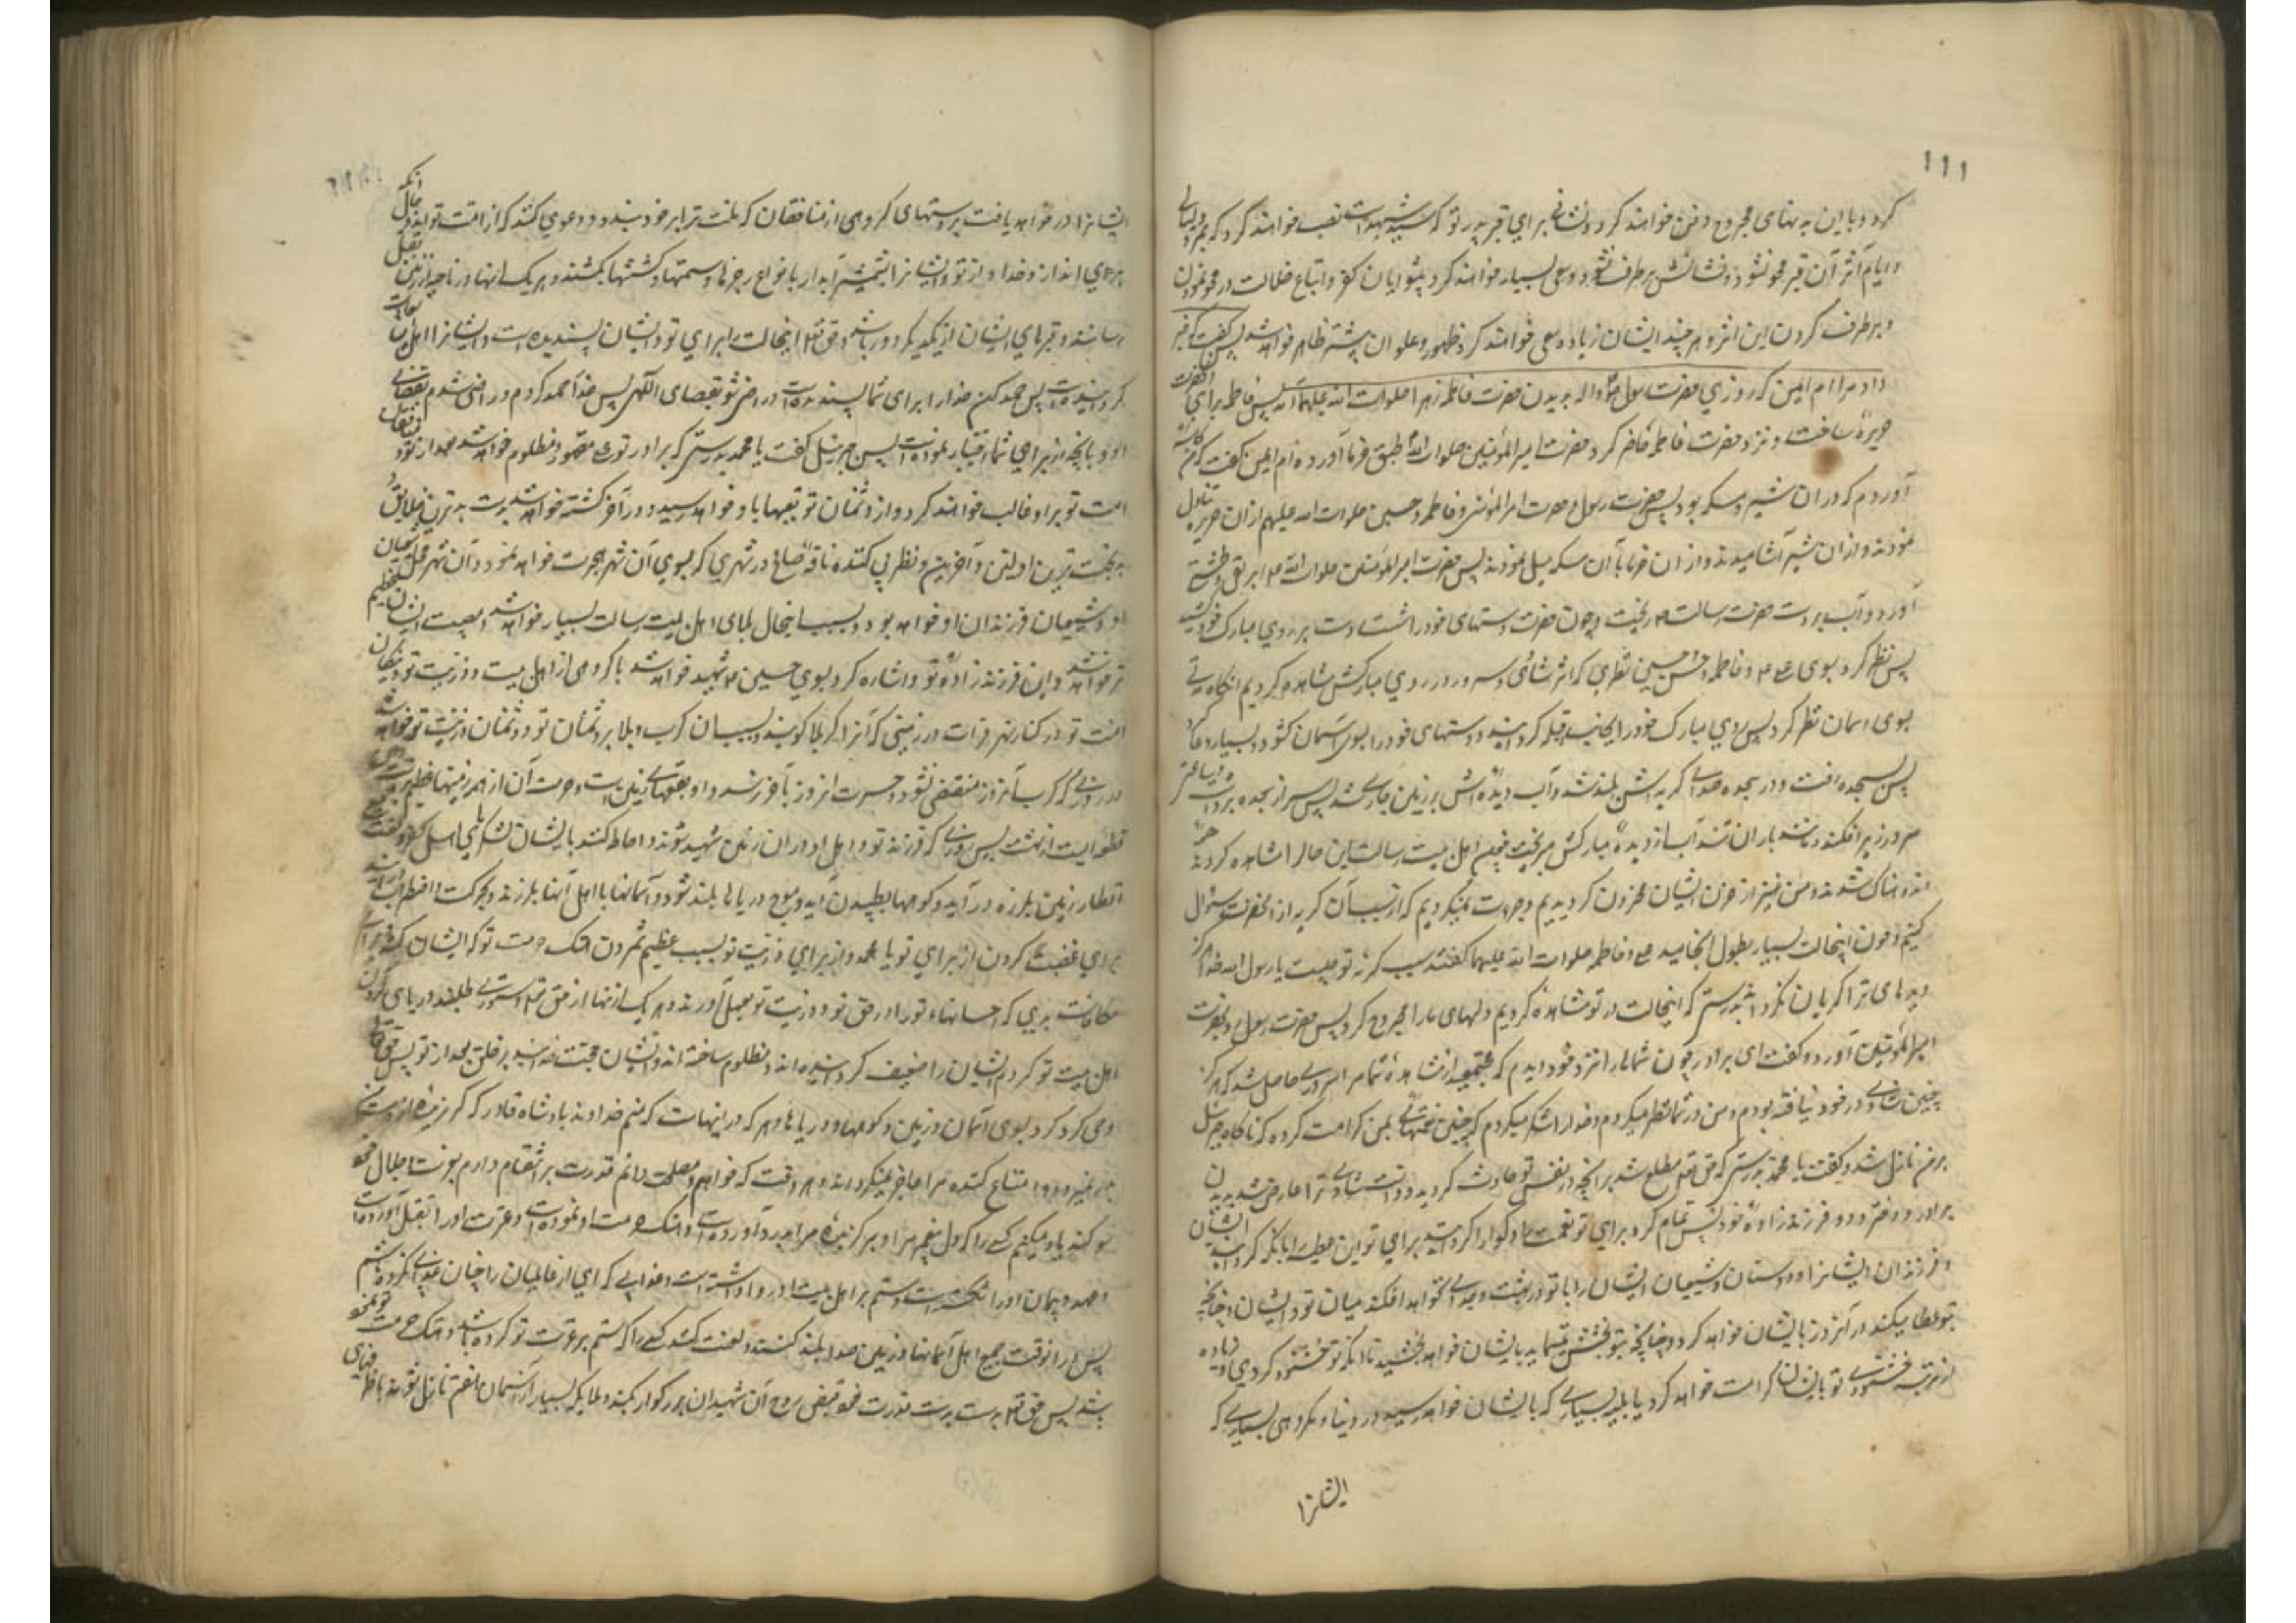 ۱۱۱
کرد و با این بدنهای مجروح دفن خواهند کرد و نشانی برای قبر پدر تو که سید شهداست نصب خواهند کرد که بمرور لیالی
و ایام اثر آن قبر محو نشود و نشانش برطرف نشود و سعی بسیار خواهند کرد پیشوایان کفر و اتباع ضلالت در محو نمودن
و برطرف کردن این اثر و هر چند ایشان زیاده سعی خواهند کرد ظهور و علو آن بیشتر ظاهر خواهد شد پس گفت خبر
داد مرا ام ایمن که روزی حضرت رسول ص و اله بدیدن حضرت فاطمه زهرا صلوات الله علیهما آمد پس فاطمه برای آنحضرت
حریره ساخت و نزد حضرت فاطمه حاضر کرد حضرت امیر المؤمنین صلوات الله طبق خرما آورد و ام ایمن گفت که من کاسه
آوردم که در آن شیر و مسکه بود پس حضرت رسول و حضرت امیر المؤمنین و فاطمه و حسنین صلوات الله علیهم از آن حریره تناول
نمودند و از آن شیر آشامیدند و از آن خرما با آن مسکه میل نمودند پس حضرت امیر المؤمنین صلوات الله ابریق و طشتی
آورد و آب بر دست حضرت رسالت ریخت و چون حضرت دستهای خود را شست دست بر روی مبارک خود کشید
پس نظر کرد بسوی علی و فاطمه و حسن و حسین نظری که اثر شادی و سرور در روی مبارکش مشاهده کردیم آنگاه مدتی
بسوی اسمان نظر کرد پس روی مبارک خود را بجانب قبله کردانید و دستهای خود را بسوی آسمان کشود و بسیار دعا کرد
پس بسجده رفت و در سجده صدای گریه اش بلند شد و آب دیده اش بر زمین جاری شد پس سر از سجده برداشت و ساعتی
سر در زیر افکند و مانند باران تند آب از دیده مبارکش میریخت چون اهل بیت رسالت این حال را مشاهده کردند همه
اندوهناک شدند و من نیز از حزن ایشان محزون کردیدیم و جرءت نمیکردیم که از سبب آن گریه از آنحضرت سئوال
کنیم و چون اینحالت بسیار بطول انجامید علی و فاطمه صلوات الله علیهما گفتند سبب گریه تو چیست یا رسول الله خدا هرگز
دیدهای ترا گریان نگرداند بدرستی که اینحالت که در تو مشاهده کردیم دلهای ما را مجروح کرد پس حضرت رسول رو بحضرت
امیر المؤمنین آورد و گفت ای برادر چون شما را نزد خود دیدم که مجتمعید از مشاهده شما مرا سروری حاصل شد که هرگز
چنین شادی در خود نیافته بودم و من در شما نظر میکردم و خدا را شکر میکردم که چنین نعمتهای بمن کرامت کرده که ناگاه جبرئیل
بر من نازل شد و گفت یا محمد بدرستی که حق تعالی مطلع شد بر آنچه در نفس تو حادث گردید و دانست شادی که ترا عارض شد بدیدن
برادر و دختر و دو فرزند زاده خود پس تمام کرد برای تو نعمت را و گوارا گردانید برای تو این عطیه را بانکه گردانید ایشان
و فرزندان ایشان را و دوستان و شیعیان ایشان را با تو در بهشت و جدایی نخواهد افکند میان تو و ایشان و چنانچه
بتو عطا میکند در آنروز بایشان خواهد کرد و چنانچه بتو بخشش مینماید بایشان خواهد بخشید تا آنکه تو خشنود گردی و زیاده
از مرتبه خشنودی تو بایشان کرامت خواهد کرد با بلیه بسیاری که بایشان خواهد رسید در دنیا و مکروهی بسیاری که
ایشانرا
ایشانرا در خواهد یافت بر دستهای گروهی از منافقان که ملت ترا بر خود بندند و دعوی کنند که از امت تواند و حال آنکه
بری اند از خدا و از تو و ایشانرا بشمشیر آبدار بانواع زجرها و ستمها و کشتنها بکشند و هر یک از آنها در ناحیه از زمین بقتل
رسانند و قبرهای ایشان از یکدیگر دور باشد و حق تعالی اینحالت را برای تو و ایشان پسندیده است و ایشانرا اهل سعادت
گردانیده است پس حمد کن خدا را برای شما پسندیده است و راضی شو بقضای الهی پس خدا را حمد کردم و راضی شدم بقضای
او و بانچه از برای شما اختیار نموده است پس جبرئیل گفت یا محمد بدرستی که برادر تو علی مقهور و مظلوم خواهد شد بعد از تو و منافقان
امت تو بر او غالب خواهند کرد و از دشمنان تو تعبها باو خواهد رسید و در آخر کشته خواهد شد بدست بدترین خلایق و
بدبخت ترین اولین و آخرین و نظیر پی کننده ناقه صالح در شهری که بسوی آن شهر هجرت خواهد نمود و آن شهر محل شیعیان
او و شیعیان فرزندان او خواهد بود و بسبب اینحال بلای اهل بیت رسالت بسیار خواهد شد و مصیبت ایشان عظیم
تر خواهد شد و این فرزند زاده تو و اشاره کرد بسوی حسین شهید خواهد شد با گروهی از اهل بیت و ذریت تو و نیکان
امت تو در کنار نهر فرات در زمینی که آنرا کربلا گویند و بسبب آن کرب و بلا بر دشمنان تو و دشمنان ذریت تو خواهد شد
در روزی که کرب آنروز منقضی نشود و حسرت آنروز بآخر نرسد و او بقعهای زمین است و حرمت آن از همه زمینها عظیمتر است
قطعه ایست از بهشت پس روزی که فرزند تو و اهل او در آن زمین شهید شوند و احاطه کنند بایشان لشکرهای اهل کفر و لعنت
اقطار زمین بلرزه در آید و کوهها بطپیدن آید و موج دریاها بلند شود و آسمانها با اهل آنها بلرزند و بحرکت و اضطراب در آیند
برای غضب کردن از برای تو یا محمد و از برای ذریت تو بسبب عظیم شمردن هتک حرمت تو که ایشان کنند برای
مکافات بدی که احسانهای تو را در حق خود و ذریت تو بعمل آورند و هر یک از آنها از حق تعالی دستوری طلبند در یاری کردن
اهل بیت تو که مردم ایشان را ضعیف گردانیده اند و مظلوم ساخته اند و ایشان حجت خدایند بر خلق بعد از تو پس حق تعالی
وحی کرد کرد بسوی آسمان و زمین و کوهها و دریاها و هر که در اینهاست که منم خداوند پادشاه قادر که گریزنده از دست من
بدر نمیرود و امتناع کننده مرا عاجز نمیگرداند و هر وقت که خواهم و مصلحت دانم قدرت بر انتقام دارم بعزت و جلال خود
سوگند یاد میکنم کسی را که دل پیغمبر مرا و برگزیده مرا بدرد آورده است و هتک حرمت او نموده است و عترت او را بقتل آورده است
و عهد و پیمان او را شکسته است و ستم بر اهل بیت او روا داشته است عذابی که احدی از عالمیان را چنان عذابی نکرده باشم
پس در آنوقت جمیع اهل آسمانها و زمین صدا بلند کنند و لعنت کنند کسی را که ستم بر عترت تو کرده باشد و هتک حرمت تو نموده
باشد پس حق تعالی بدست قدرت خود قبض روح آن شهیدان بزرگوار بکند و ملایکه بسیار از آسمان هفتم نازل شوند با ظرفهای